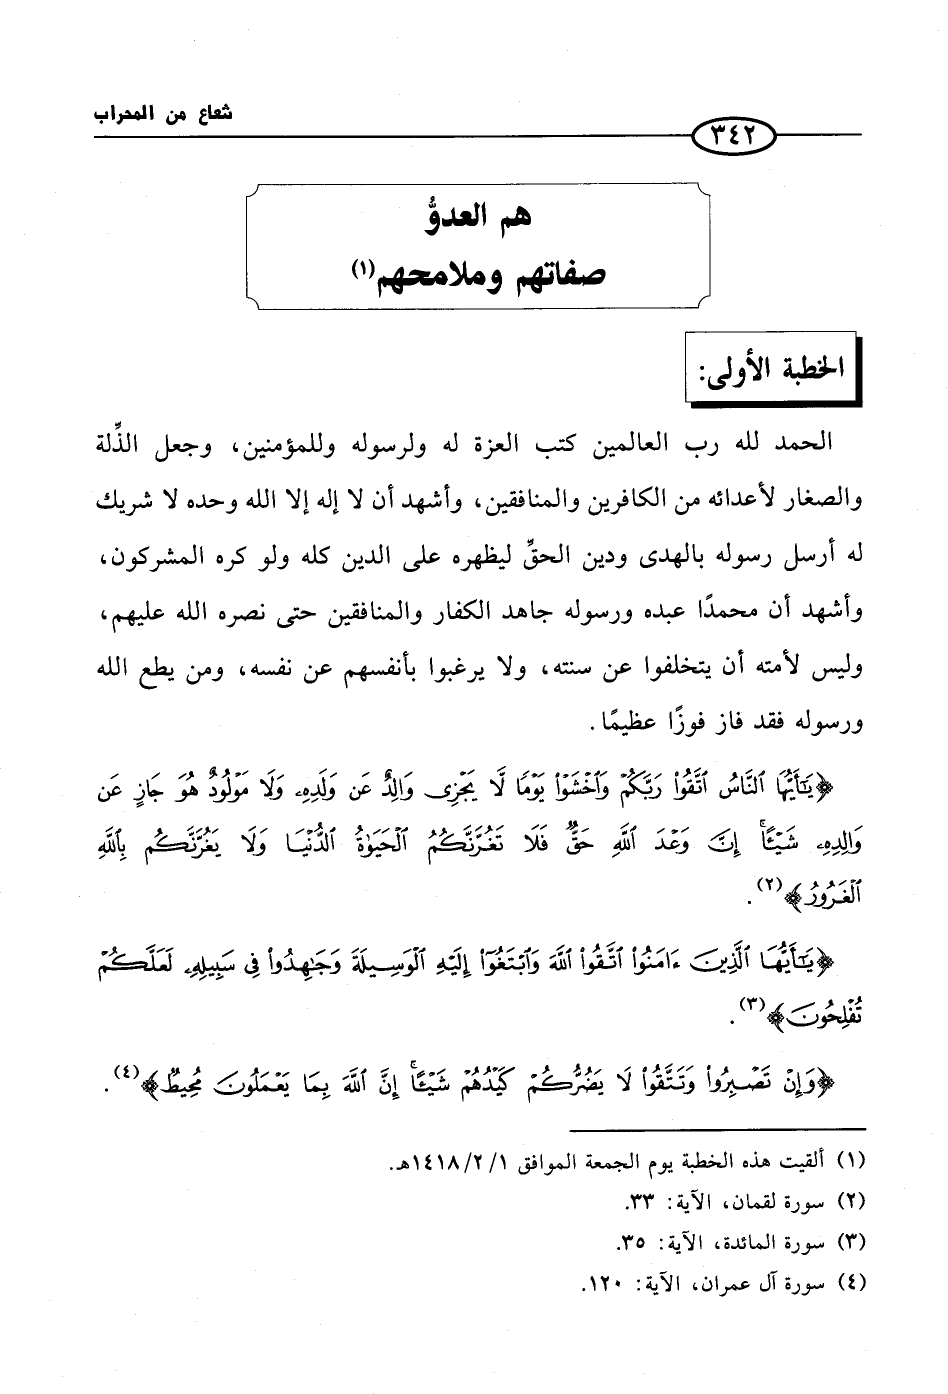 شعاع من المحراب
٣٤٢
هم العدوُّ
صفاتهم وملامحهم(١)
الخطبة الأولى:
الحمد لله رب العالمين كتب العزة له ولرسوله وللمؤمنين، وجعل الذِّلة
والصغار لأعدائه من الكافرين والمنافقين، وأشهد أن لا إله إلا الله وحده لا شريك
له أرسل رسوله بالهدى ودين الحقِّ ليظهره على الدين كله ولو كره المشركون،
وأشهد أن محمدًا عبده ورسوله جاهد الكفار والمنافقين حتى نصره الله عليهم،
وليس لأمته أن يتخلفوا عن سنته، ولا يرغبوا بأنفسهم عن نفسه، ومن يطع الله
ورسوله فقد فاز فوزًا عظيمًا.
﴿يَٰٓأَيُّهَا ٱلنَّاسُ ٱتَّقُوا۟ رَبَّكُمْ وَٱخْشَوْا۟ يَوْمًا لَّا يَجْزِى وَالِدٌ عَن وَلَدِهِۦ وَلَا مَوْلُودٌ هُوَ جَازٍ عَن
وَالِدِهِۦ شَيْـًٔا ۚ إِنَّ وَعْدَ ٱللَّهِ حَقٌّ ۖ فَلَا تَغُرَّنَّكُمُ ٱلْحَيَوٰةُ ٱلدُّنْيَا وَلَا يَغُرَّنَّكُم بِٱللَّهِ
ٱلْغَرُورُ﴾(٢).
﴿يَٰٓأَيُّهَا ٱلَّذِينَ ءَامَنُوا۟ ٱتَّقُوا۟ ٱللَّهَ وَٱبْتَغُوٓا۟ إِلَيْهِ ٱلْوَسِيلَةَ وَجَٰهِدُوا۟ فِى سَبِيلِهِۦ لَعَلَّكُمْ
تُفْلِحُونَ﴾(٣).
﴿وَإِن تَصْبِرُوا۟ وَتَتَّقُوا۟ لَا يَضُرُّكُمْ كَيْدُهُمْ شَيْـًٔا ۗ إِنَّ ٱللَّهَ بِمَا يَعْمَلُونَ مُحِيطٌ﴾(٤).
(١) ألقيت هذه الخطبة يوم الجمعة الموافق ١٤١٨/٢/١هـ.
(٢) سورة لقمان، الآية: ٣٣.
(٣) سورة المائدة، الآية: ٣٥.
(٤) سورة آل عمران، الآية: ١٢٠.